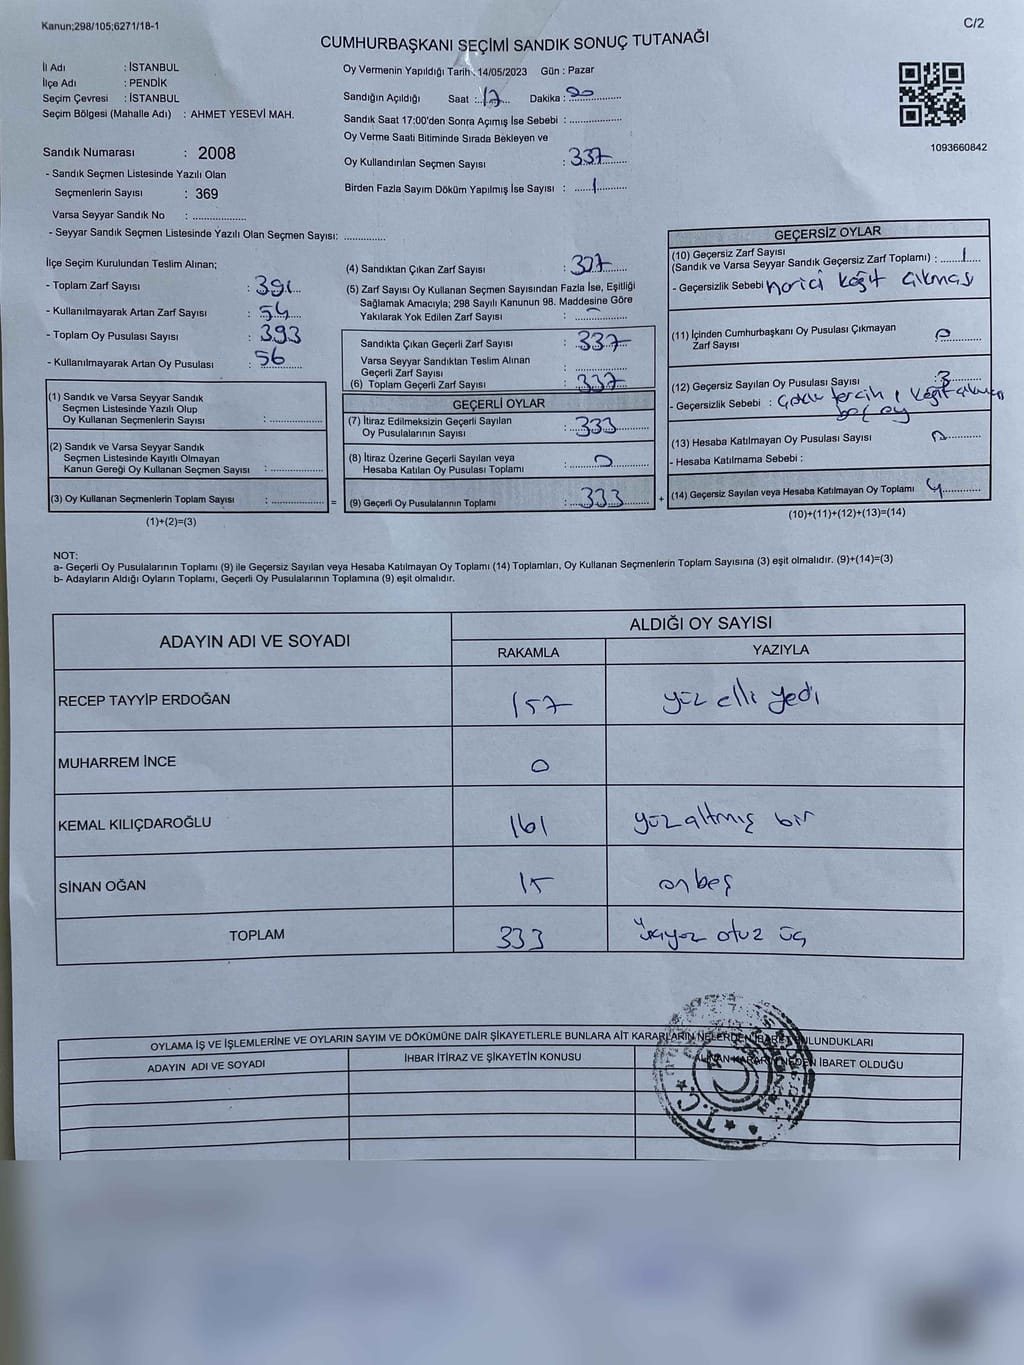 Kanun;298/105;6271/18-1
C/2
CUMHURBAŞKANI SEÇİMİ SANDIK SONUÇ TUTANAĞI
İl Adı : İSTANBUL
İlçe Adı : PENDİK
Seçim Çevresi : İSTANBUL
Seçim Bölgesi (Mahalle Adı) : AHMET YESEVİ MAH.
Sandık Numarası : 2008
- Sandık Seçmen Listesinde Yazılı Olan
Seçmenlerin Sayısı : 369
Varsa Seyyar Sandık No : ....................
- Seyyar Sandık Seçmen Listesinde Yazılı Olan Seçmen Sayısı: ...............
Oy Vermenin Yapıldığı Tarih : 14/05/2023 Gün : Pazar
Sandığın Açıldığı Saat : 17 Dakika :
Sandık Saat 17:00'den Sonra Açımış İse Sebebi : ....................
Oy Verme Saati Bitiminde Sırada Bekleyen ve
Oy Kullandırılan Seçmen Sayısı : 337
Birden Fazla Sayım Döküm Yapılmış İse Sayısı : 1
1093660842
İlçe Seçim Kurulundan Teslim Alınan;
- Toplam Zarf Sayısı : 391
- Kullanılmayarak Artan Zarf Sayısı : 54
- Toplam Oy Pusulası Sayısı : 393
- Kullanılmayarak Artan Oy Pusulası : 56
(1) Sandık ve Varsa Seyyar Sandık
Seçmen Listesinde Yazılı Olup
Oy Kullanan Seçmenlerin Sayısı : ....................
(2) Sandık ve Varsa Seyyar Sandık
Seçmen Listesinde Kayıtlı Olmayan
Kanun Gereği Oy Kullanan Seçmen Sayısı : ....................
(3) Oy Kullanan Seçmenlerin Toplam Sayısı : .................... =
(1)+(2)=(3)
(4) Sandıktan Çıkan Zarf Sayısı : 337
(5) Zarf Sayısı Oy Kullanan Seçmen Sayısından Fazla İse, Eşitliği
Sağlamak Amacıyla; 298 Sayılı Kanunun 98. Maddesine Göre
Yakılarak Yok Edilen Zarf Sayısı :
Sandıkta Çıkan Geçerli Zarf Sayısı : 337
Varsa Seyyar Sandıktan Teslim Alınan
Geçerli Zarf Sayısı : ....................
(6) Toplam Geçerli Zarf Sayısı : 337
GEÇERLİ OYLAR
(7) İtiraz Edilmeksizin Geçerli Sayılan
Oy Pusulalarının Sayısı : 333
(8) İtiraz Üzerine Geçerli Sayılan veya
Hesaba Katılan Oy Pusulası Toplamı : 0
(9) Geçerli Oy Pusulalarının Toplamı : 333 +
GEÇERSİZ OYLAR
(10) Geçersiz Zarf Sayısı
(Sandık ve Varsa Seyyar Sandık Geçersiz Zarf Toplamı) : 1
- Geçersizlik Sebebi : harici kağıt çıkması
(11) İçinden Cumhurbaşkanı Oy Pusulası Çıkmayan
Zarf Sayısı 0
(12) Geçersiz Sayılan Oy Pusulası Sayısı : 3
- Geçersizlik Sebebi : Çoklu tercih, kağıt
boş oy
(13) Hesaba Katılmayan Oy Pusulası Sayısı 0
- Hesaba Katılmama Sebebi :
(14) Geçersiz Sayılan veya Hesaba Katılmayan Oy Toplamı 4
(10)+(11)+(12)+(13)=(14)
NOT:
a- Geçerli Oy Pusulalarının Toplamı (9) ile Geçersiz Sayılan veya Hesaba Katılmayan Oy Toplamı (14) Toplamları, Oy Kullanan Seçmenlerin Toplam Sayısına (3) eşit olmalıdır. (9)+(14)=(3)
b- Adayların Aldığı Oyların Toplamı, Geçerli Oy Pusulalarının Toplamına (9) eşit olmalıdır.
ADAYIN ADI VE SOYADI
ALDIĞI OY SAYISI
RAKAMLA YAZIYLA
RECEP TAYYİP ERDOĞAN 157 yüz elli yedi
MUHARREM İNCE 0
KEMAL KILIÇDAROĞLU 161 yüzaltmış bir
SİNAN OĞAN 15 onbeş
TOPLAM 333 üçyüz otuz üç
OYLAMA İŞ VE İŞLEMLERİNE VE OYLARIN SAYIM VE DÖKÜMÜNE DAİR ŞİKAYETLERLE BUNLARA AİT KARARLARIN NELERDEN İBARET BULUNDUKLARI
ADAYIN ADI VE SOYADI İHBAR İTİRAZ VE ŞİKAYETİN KONUSU ALINAN KARARIN NEDEN İBARET OLDUĞU
T.C.